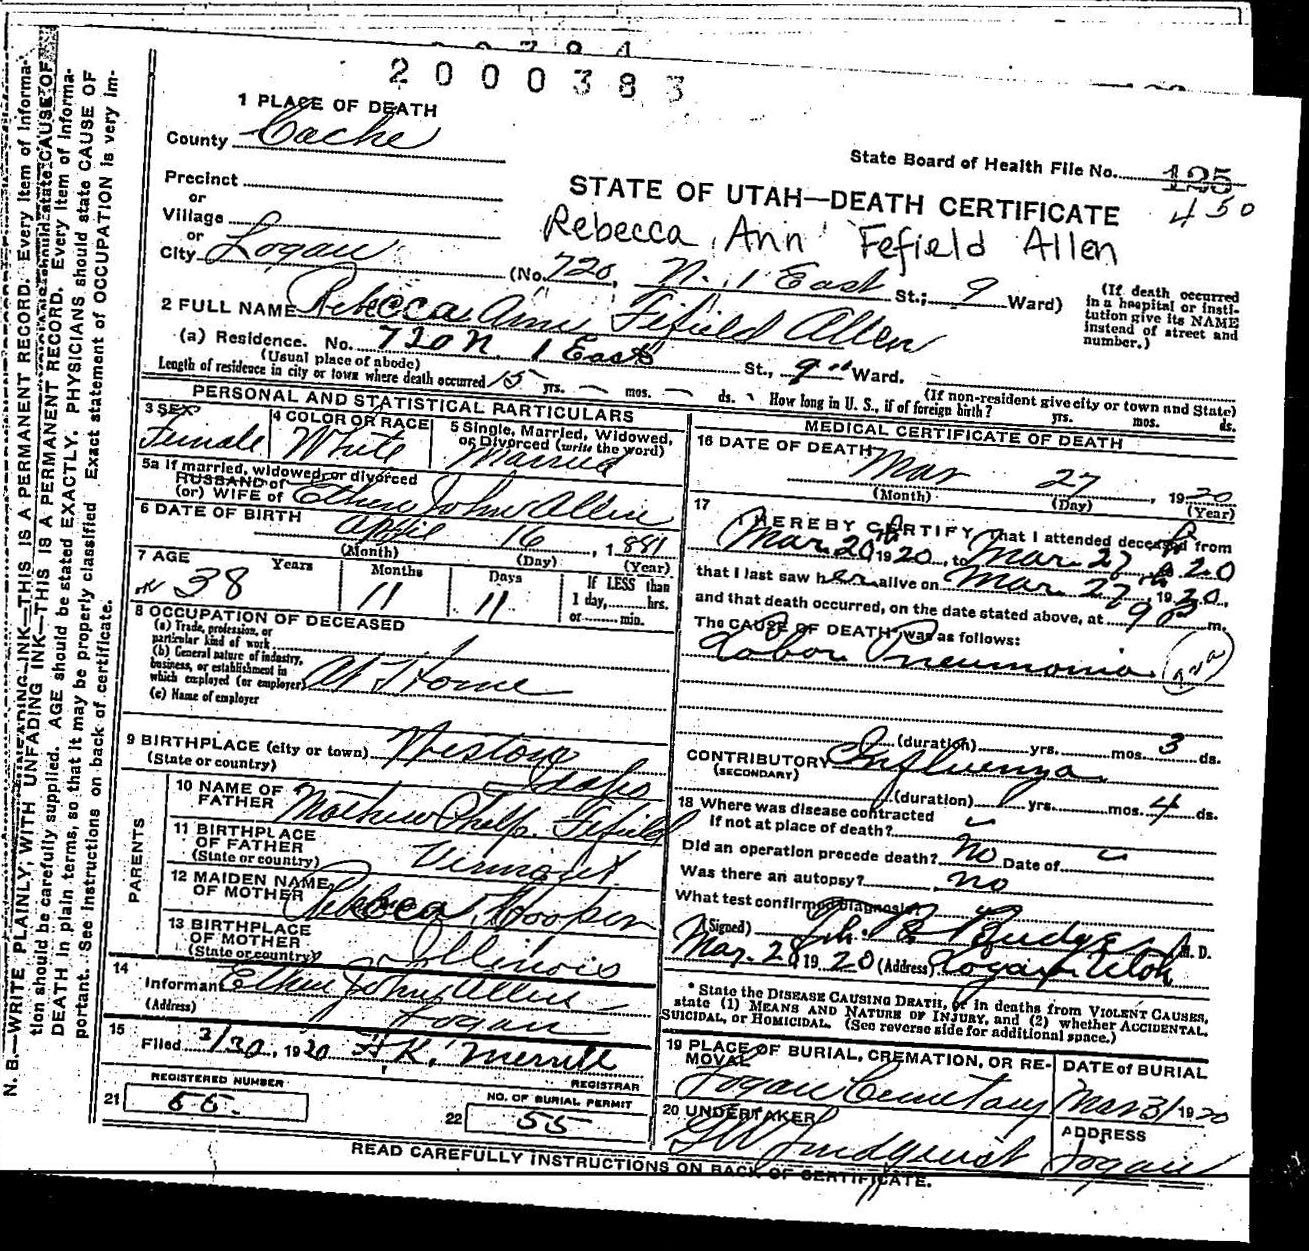 2000383
1 PLACE OF DEATH
County Cache
State Board of Health File No. 125
450
Precinct
or
Village
or
City Logan
STATE OF UTAH—DEATH CERTIFICATE
Rebecca Ann Fefield Allen
(No. 720, N. 1 East St.; 9 Ward)
(If death occurred in a hospital or institution give its NAME instead of street and number.)
2 FULL NAME Rebecca Ann Fifield Allen
(a) Residence. No. 720 N. 1 East St., 9th Ward.
(Usual place of abode)
(If non-resident give city or town and State)
Length of residence in city or town where death occurred 15 yrs. — mos. — ds. How long in U. S., if of foreign birth? yrs. mos. ds.
PERSONAL AND STATISTICAL PARTICULARS
3 SEX Female
4 COLOR OR RACE White
5 Single, Married, Widowed, or Divorced (write the word) Married
5a If married, widowed, or divorced
HUSBAND of
(or) WIFE of John Allen
6 DATE OF BIRTH April 16, 1881
(Month) (Day) (Year)
7 AGE 38 Years 11 Months 11 Days
If LESS than 1 day, hrs. or min.
8 OCCUPATION OF DECEASED
(a) Trade, profession, or particular kind of work
(b) General nature of industry, business, or establishment in which employed (or employer) At Home
(c) Name of employer
9 BIRTHPLACE (city or town) Weston
(State or country) Idaho
PARENTS
10 NAME OF FATHER Mathew Phelp. Fifield
11 BIRTHPLACE OF FATHER (State or country) Vermont
12 MAIDEN NAME OF MOTHER Rebecca Hooper
13 BIRTHPLACE OF MOTHER (State or country) Illinois
14 Informant John Allen
(Address) Logan
15 Filed 3/30, 1920 K. Merrill
REGISTRAR
REGISTERED NUMBER
21 55.
NO. OF BURIAL PERMIT
22 55
MEDICAL CERTIFICATE OF DEATH
16 DATE OF DEATH Mar 27, 1920
(Month) (Day) (Year)
17 I HEREBY CERTIFY, That I attended deceased from
Mar 20th 1920, to Mar. 27, 1920
that I last saw her alive on Mar. 27th, 1920,
and that death occurred, on the date stated above, at 9 P m.
The CAUSE OF DEATH was as follows:
Lobar Pneumonia
(duration) yrs. mos. 3 ds.
CONTRIBUTORY Influenza
(SECONDARY)
(duration) yrs. mos. 4 ds.
18 Where was disease contracted
If not at place of death?
Did an operation precede death? No Date of
Was there an autopsy? no
What test confirmed diagnosis?
(Signed) Budge M. D.
Mar. 28 1920 (Address) Logan Utah
* State the DISEASE CAUSING DEATH, or in deaths from VIOLENT CAUSES, state (1) MEANS AND NATURE OF INJURY, and (2) whether ACCIDENTAL, SUICIDAL, or HOMICIDAL. (See reverse side for additional space.)
19 PLACE OF BURIAL, CREMATION, OR REMOVAL Logan Cemetary
DATE of BURIAL Mar 31 1920
20 UNDERTAKER G W Lindquist
ADDRESS Logan
READ CAREFULLY INSTRUCTIONS ON BACK OF CERTIFICATE.
N. B.—WRITE PLAINLY, WITH UNFADING INK—THIS IS A PERMANENT RECORD. Every item of information should be carefully supplied. AGE should be stated EXACTLY. PHYSICIANS should state CAUSE OF DEATH in plain terms, so that it may be properly classified. Exact statement of OCCUPATION is very important. See instructions on back of certificate.